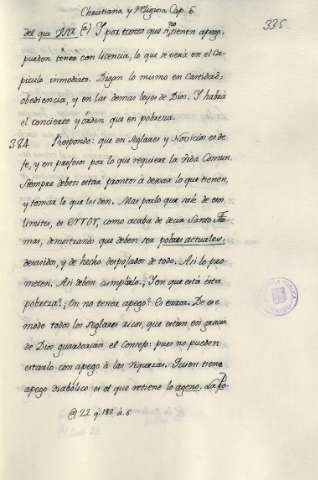 Christiana y Religiosa Cap. 6.
335
del qui @ Y por tanto que no tienen apego,
pueden tener con licencia, lo que se verà en el Ca-
pitulo inmediato. Digan lo mismo en Castidad,
obediencia, y en las demas leyes de Dios. Y habrà
el concierto y orden que en pobreza.
384 Respondo: que en Seglares y Novicios es de
fe, y en profesos por lo que requiere la Vida Comun.
Siempre deben estar prontos à dexar lo que tienen,
y tomar lo que les den. Mas parlo que sale de esos
limites, es ERROR, como acaba de decir Santo Tho-
mas, demostrando que deben ser pobres actuales,
desnudos, y de hecho despojados de todo. Asi lo pro-
meten. Asi deben cumplirlo. ¿Y en que està esta
pobreza? ¿En no tener apego? Es error. De ese
modo todos los Seglares ricos, que estan en gracia
de Dios guardaràn el Consejo: pues no pueden
estarlo con apego à las riquezas. Quien tiene
apego diabòlico es el que retiene lo ageno. La Po-
@ 22 q. 188 à.